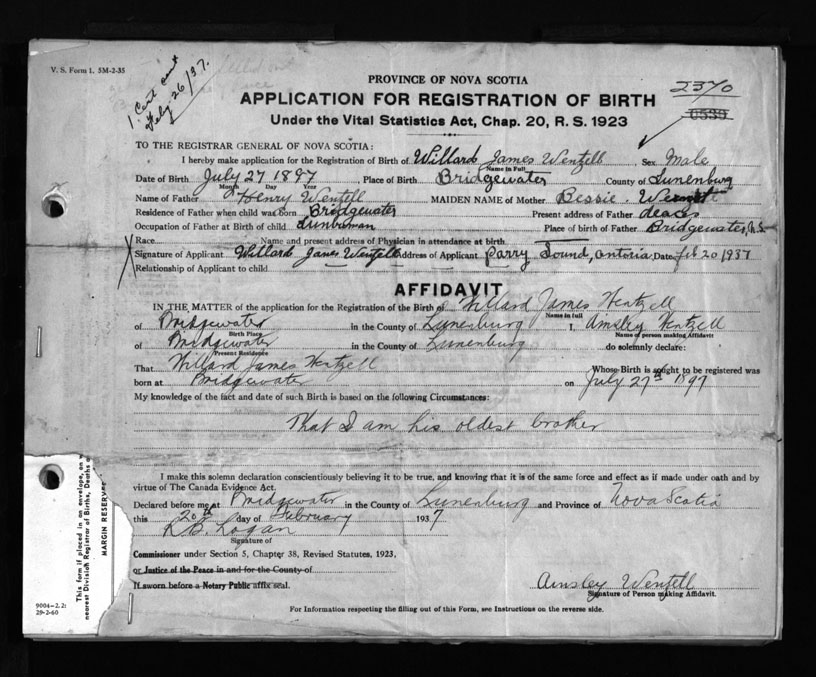 V. S. Form 1. 5M-2-35
1. Cert
Feby. 26/37.
PROVINCE OF NOVA SCOTIA
APPLICATION FOR REGISTRATION OF BIRTH
Under the Vital Statistics Act, Chap. 20, R. S. 1923
2370
TO THE REGISTRAR GENERAL OF NOVA SCOTIA:
I hereby make application for the Registration of Birth of Willard James Wentzell Sex Male
Name in Full
Date of Birth July 27 1897 Place of Birth Bridgewater County of Lunenburg
Month Day Year
Name of Father Henry Wentzell MAIDEN NAME of Mother Bessie
Residence of Father when child was born Bridgewater Present address of Father
Occupation of Father at Birth of child Lunbrman Place of birth of Father Bridgewater, N.S.
Race Name and present address of Physician in attendance at birth
Signature of Applicant Willard James Wentzell Address of Applicant Parry Sound, Date Feb 20 1937
Relationship of Applicant to child
AFFIDAVIT
IN THE MATTER of the application for the Registration of the Birth of Willard James Wentzell
Name in full
of Bridgewater in the County of Lunenburg I, Ainsley Wentzell
Birth Place Name of person making Affidavit
of Bridgewater in the County of Lunenburg do solemnly declare:
Present Residence
That Willard James Wentzell Whose Birth is sought to be registered was
born at Bridgewater on July 27th 1897
My knowledge of the fact and date of such Birth is based on the following Circumstances:
That I am his oldest brother
I make this solemn declaration conscientiously believing it to be true, and knowing that it is of the same force and effect as if made under oath and by
virtue of The Canada Evidence Act.
Declared before me at Bridgewater in the County of Lunenburg and Province of Nova Scotia
this 20th day of February 1937
Logan
Signature of
Commissioner under Section 5, Chapter 38, Revised Statutes, 1923,
or Justice of the Peace in and for the County of
If sworn before a Notary Public affix seal.
Ainsley Wentzell
Signature of Person making Affidavit.
For Information respecting the filling out of this Form, see Instructions on the reverse side.
This form if placed in an envelope, an
nearest Division Registrar of Births, Deaths
MARGIN RESERVE
9004-2.2:
29-2-60